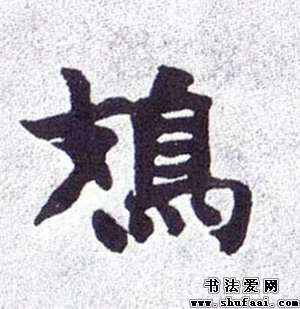 鳩
书法爱网
www.shufaai.com